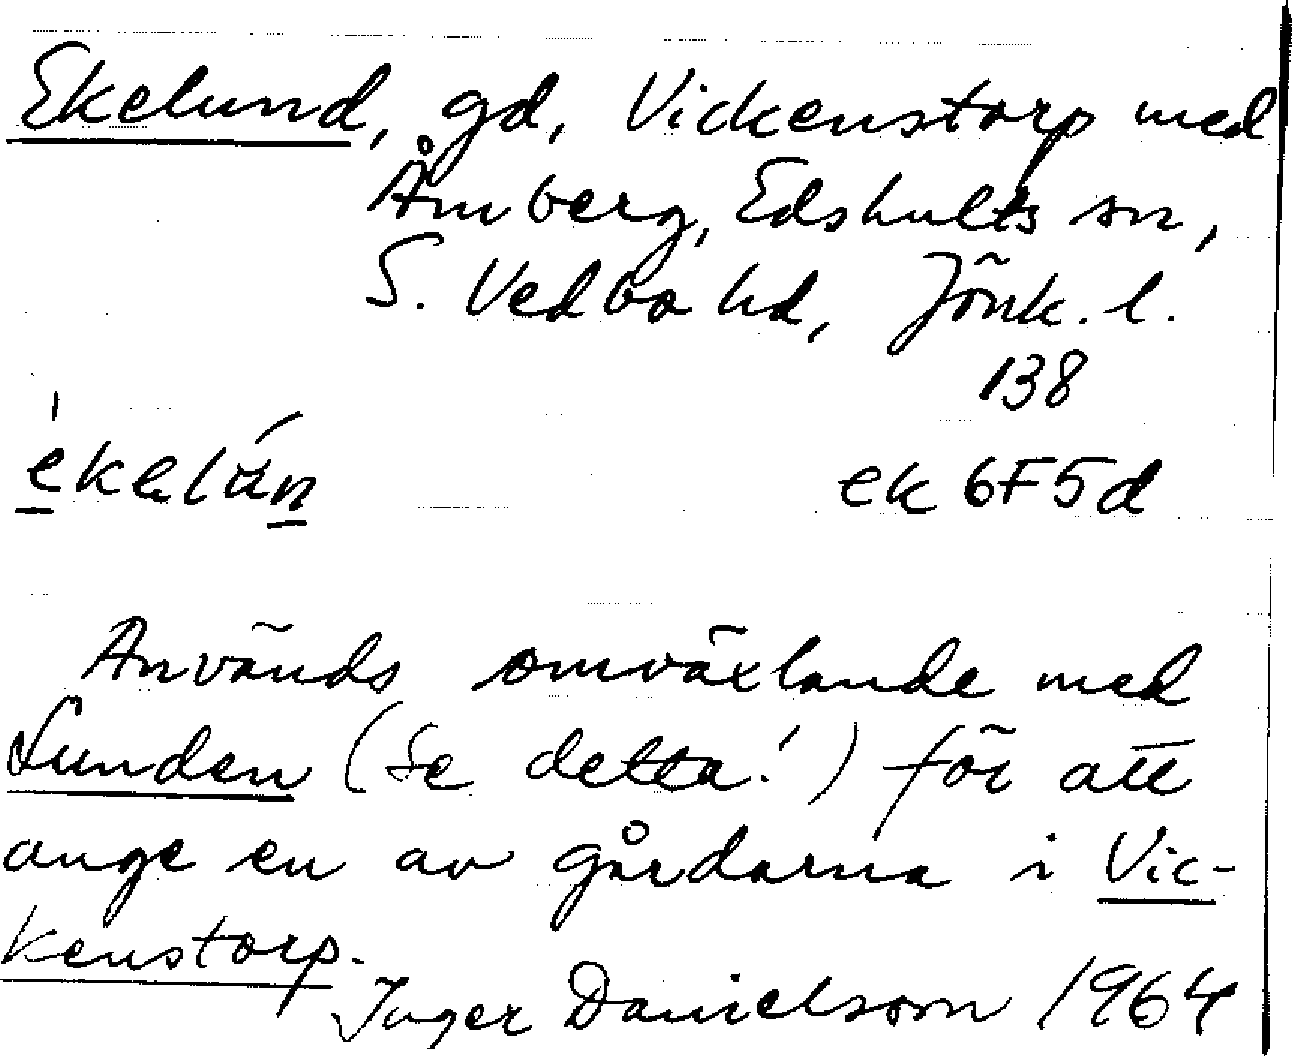 Ekelund, gd, Vickenstorp med
Åmberg, Edshults sn,
S. Vedbo hd, Jönk. l.
138
ekalún ek 6F5d
Används omväxlande med
Lunden (Se detta!) för att
ange en av gårdarna i Vic-
kenstorp.
Inger Danielsson 1964